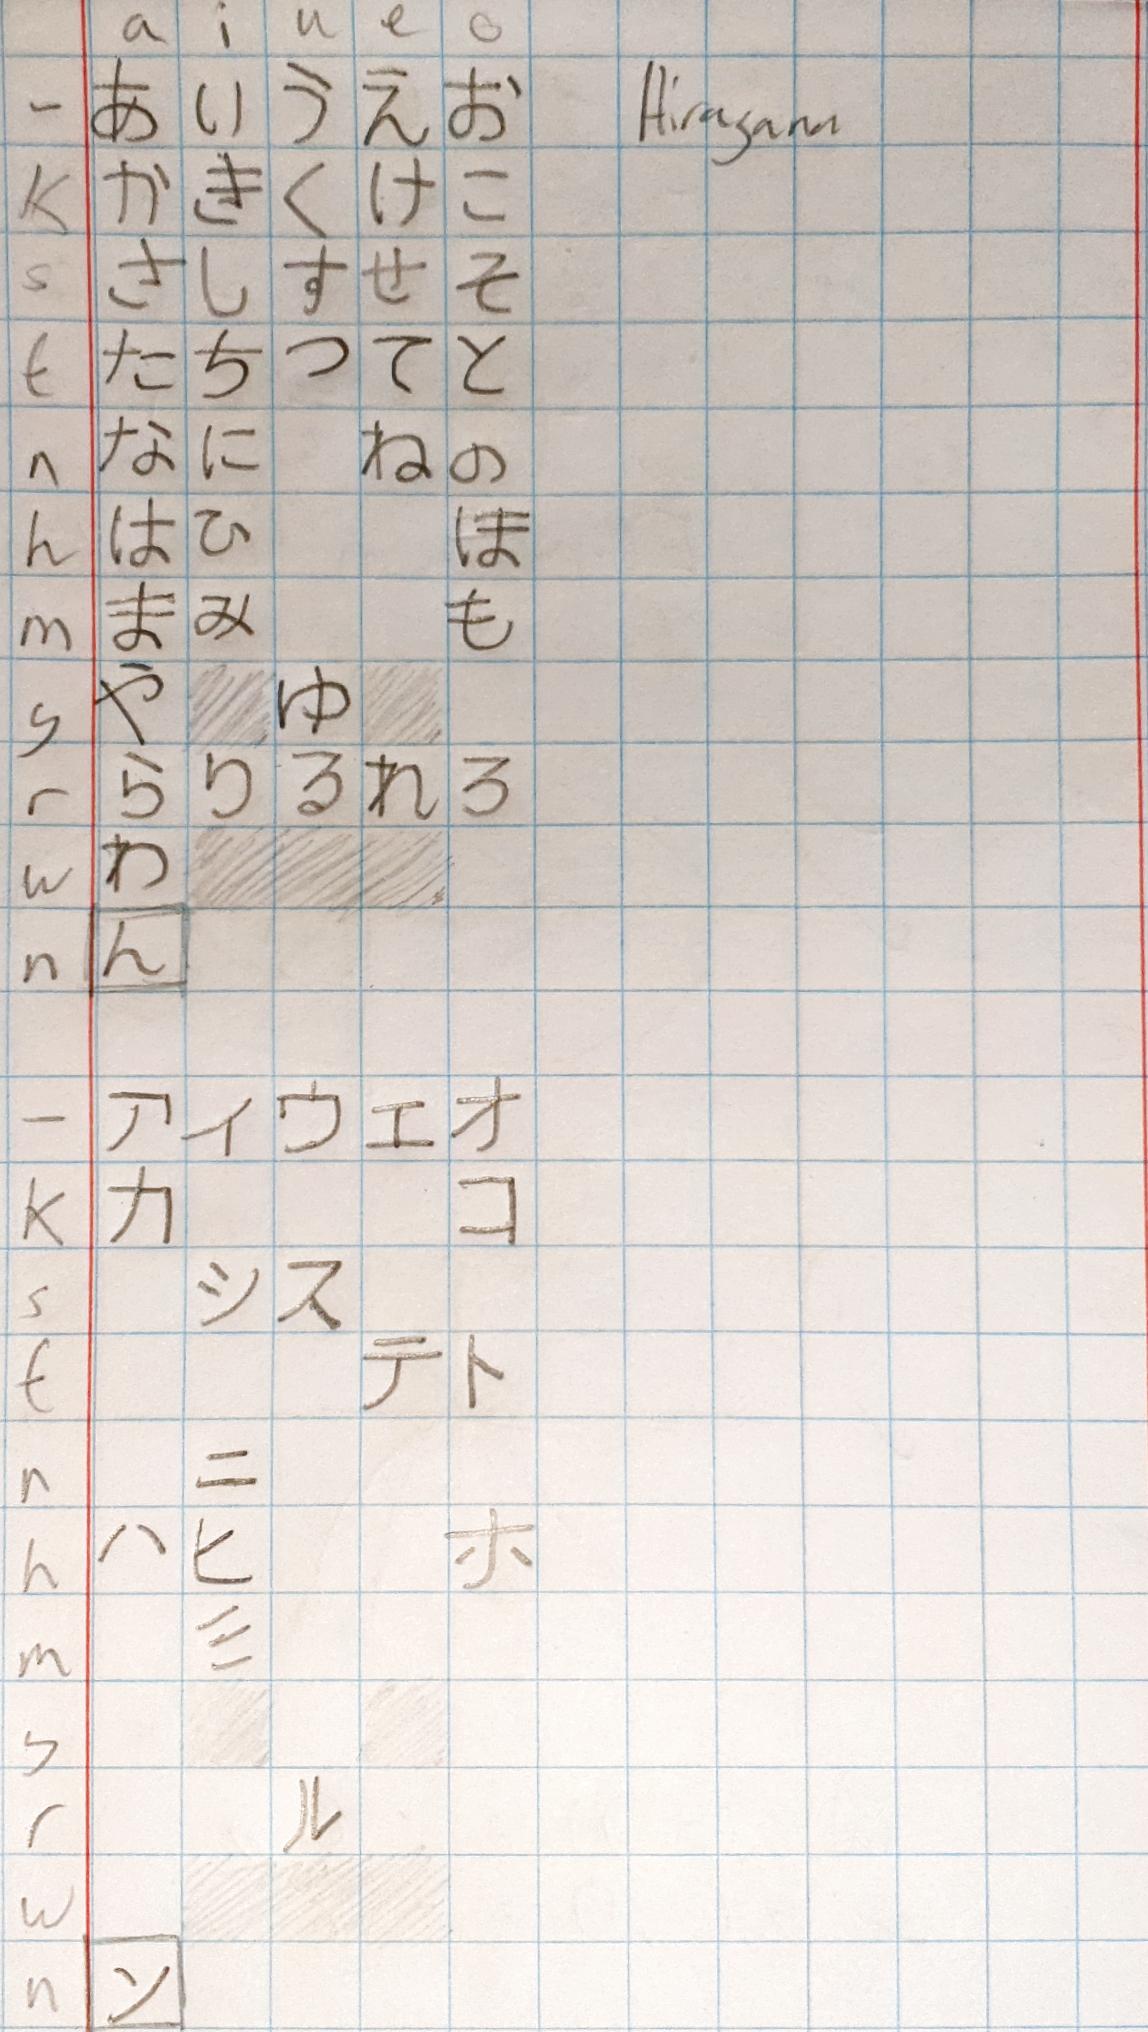 a i u e o
- あ い う え お Hiragana
K か き く け こ
s さ し す せ そ
t た ち つ て と
n な に ね の
h は ひ ほ
m ま み も
y や ゆ
r ら り る れ ろ
w わ
n ん
- ア イ ウ エ オ
K カ コ
s シ ス
t テ ト
n ニ
h ハ ヒ ホ
m ミ
y
r ル
w
n ン